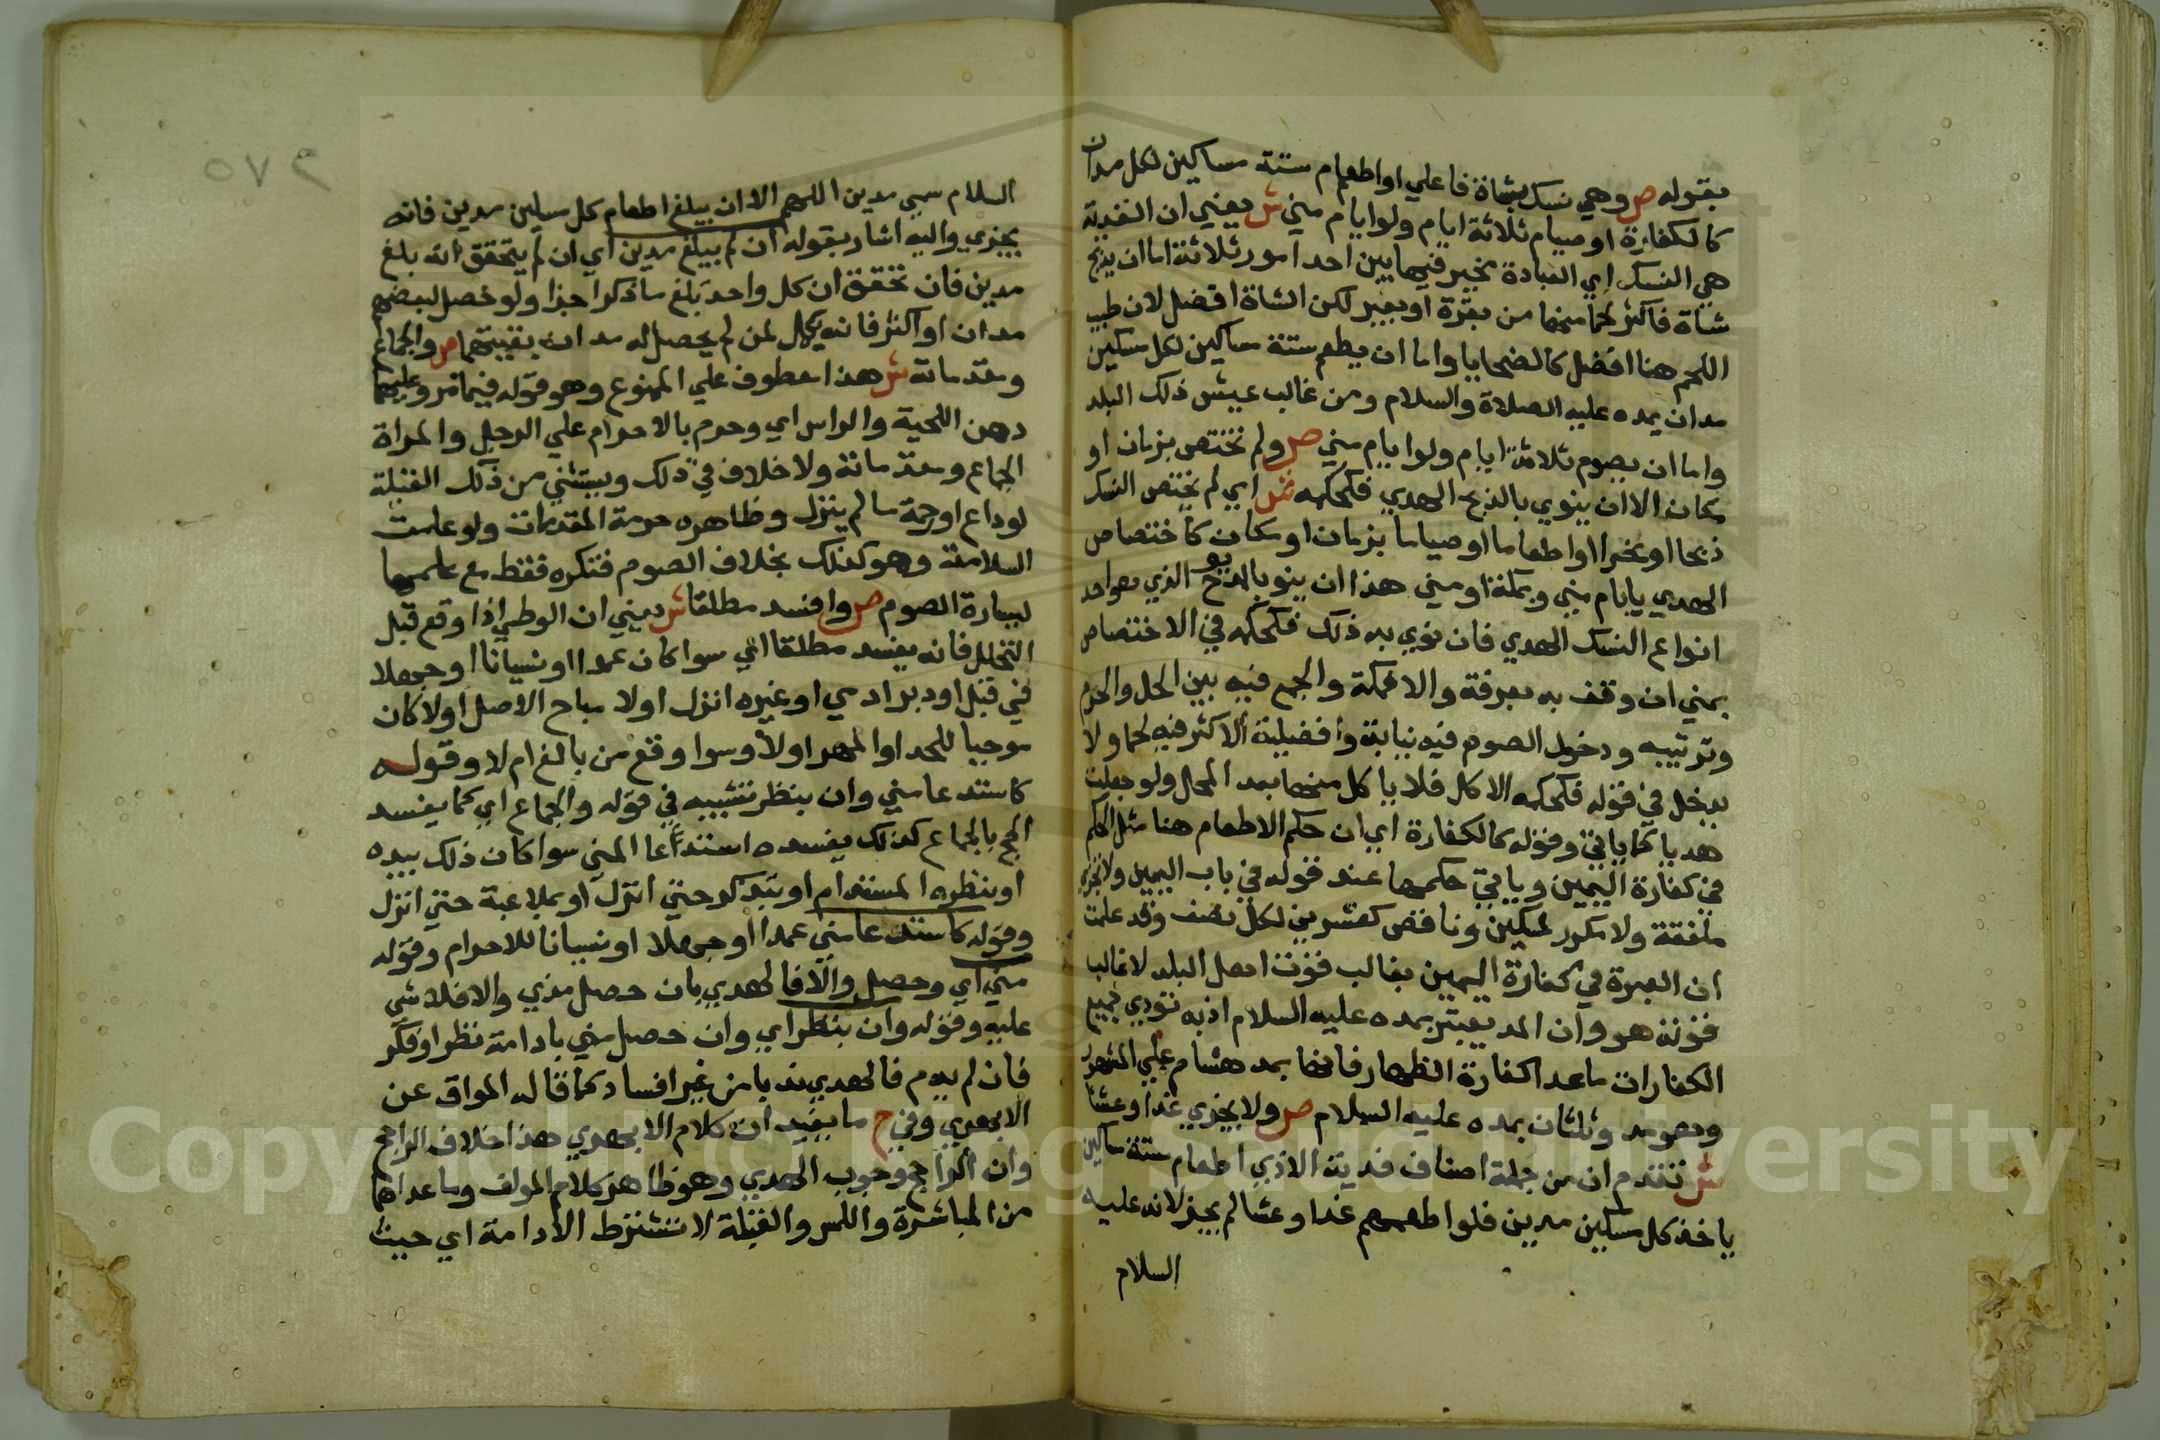 بقوله ص وهي نسك بشاة فاعلي او اطعام ستة مساكين لكل مدان
كالكفارة او صيام ثلاثة ايام ولو ايام مني ش يعني ان الفدية
هي النسك اي العبادة مخير فيها بين احد امور ثلاثة اما ان يذبح
شاة فاكثر لحما منها من بقرة او بعير لكن الشاة افضل لان طيب
اللحم هنا افضل كالضحايا واما ان يطعم ستة مساكين لكل مسكين
مدان بمده عليه الصلاة والسلام ومن غالب عيش ذلك البلد
واما ان يصوم ثلاثة ايام ولو ايام مني ص ولم تختص بزمان او
مكان الا ان ينوي بالذبح الهدي فكحكمه ش اي لم يختص النسك
ذبحا او نحرا او اطعاما او صياما بزمان او مكان كاختصاص
الهدي بايام مني وبمكة او مني هذا ان ينو بالذبح الذي هو احد
انواع النسك الهدي فان نوي به ذلك فكحكمه في الاختصاص
بمني ان وقف به بعرفة والا فمكة والجمع فيه بين الحل والحرم
وترتيبه ودخول الصوم فيه نيابة وافضيلية الاكثر فيه لحما ولا
يدخل في قوله فكحكمه الاكل فلا ياكل منها بعد المحل ولو جعلت
هديا كما ياتي وقوله كالكفارة اي ان حكم الاطعام هنا مثل الحكم
في كفارة اليمين وياتي حكمها عند قوله في باب اليمين ولا تجزي
ملفقة ولا مكرر لمسكين وناقص كعشرين لكل نصف وقد علمت
ان العبرة في كفارة اليمين بغالب قوت اهل البلد لا غالب
قوته هو وان المد يعتبر بمده عليه السلام اذ به تودي جميع
الكفارات ما عدا كفارة الظهار فانها بمد هشام علي المشهور
وهو مد وثلثان بمده عليه السلام ص ولا يجزي غدا وعشا
ش تقدم ان من جملة اصناف فدية الاذي اطعام ستة مساكين
ياخذ كل مسكين مدين فلو اطعمهم غدا وعشا لم يجز لانه عليه
السلام
٢٧٥
السلام سمي مدين اللهم الا ان يبلغ اطعام كل مسكين مدين فانه
يجزي واليه اشار بقوله ان لم يبلغ مدين اي ان لم يتحقق انه بلغ
مدين فان تحقق ان كل واحد بلغ ما ذكر اجزا ولو حصل لبعضهم
مدان او اكثر فانه يكمل لمن لم يحصل له مدان بقيتهما ص والجماع
ومقدماته ش هذا معطوف علي الممنوع وهو قوله فيما مر وعليهما
دهن اللحية والراس اي وحرم بالاحرام علي الرجل والمراة
الجماع ومقدماته ولا خلاف في ذلك ويستثني من ذلك القبلة
لوداع او رحمة ما لم ينزل وظاهره حرمة المقدمات ولو علمت
السلامة وهو كذلك بخلاف الصوم فتكره فقط مع علمها
ليسارة الصوم ص وافسد مطلقا ش يعني ان الوطي اذا وقع قبل
التحلل فانه يفسد مطلقا اي سوا كان عمدا او نسيانا او جهلا
في قبل او دبر ادمي او غيره انزل او لا مباح الاصل او لا كان
موجبا للحد او المهر او لا وسوا وقع من بالغ ام لا وقوله
كاستدعا مني وان بنظر تشبيه في قوله والجماع اي كما يفسد
الحج بالجماع كذلك يفسده استدعا المني سوا كان ذلك بيده
او بنظره المستدام او بتذكر حتي انزل او بملاعبة حتي انزل
وقوله كاستدعا مني عمدا او جهلا او نسيانا للاحرام وقوله
مني اي وحصل والا فالهدي بان حصل مذي والا فلا شي
عليه وقوله وان بنظر اي وان حصل مني بادامة نظر او فكر
فان لم يدم فالهدي ندبا من غير افساد كما قاله المواق عن
الابهري وفي ح ما يفيد ان كلام الابهري هذا خلاف الراجح
وان الراجح وجوب الهدي وهو ظاهر كلام المولف وما عداهما
من المباشرة واللمس والقبلة لا تشترط الادامة اي حيث
Copyright © King Saud University